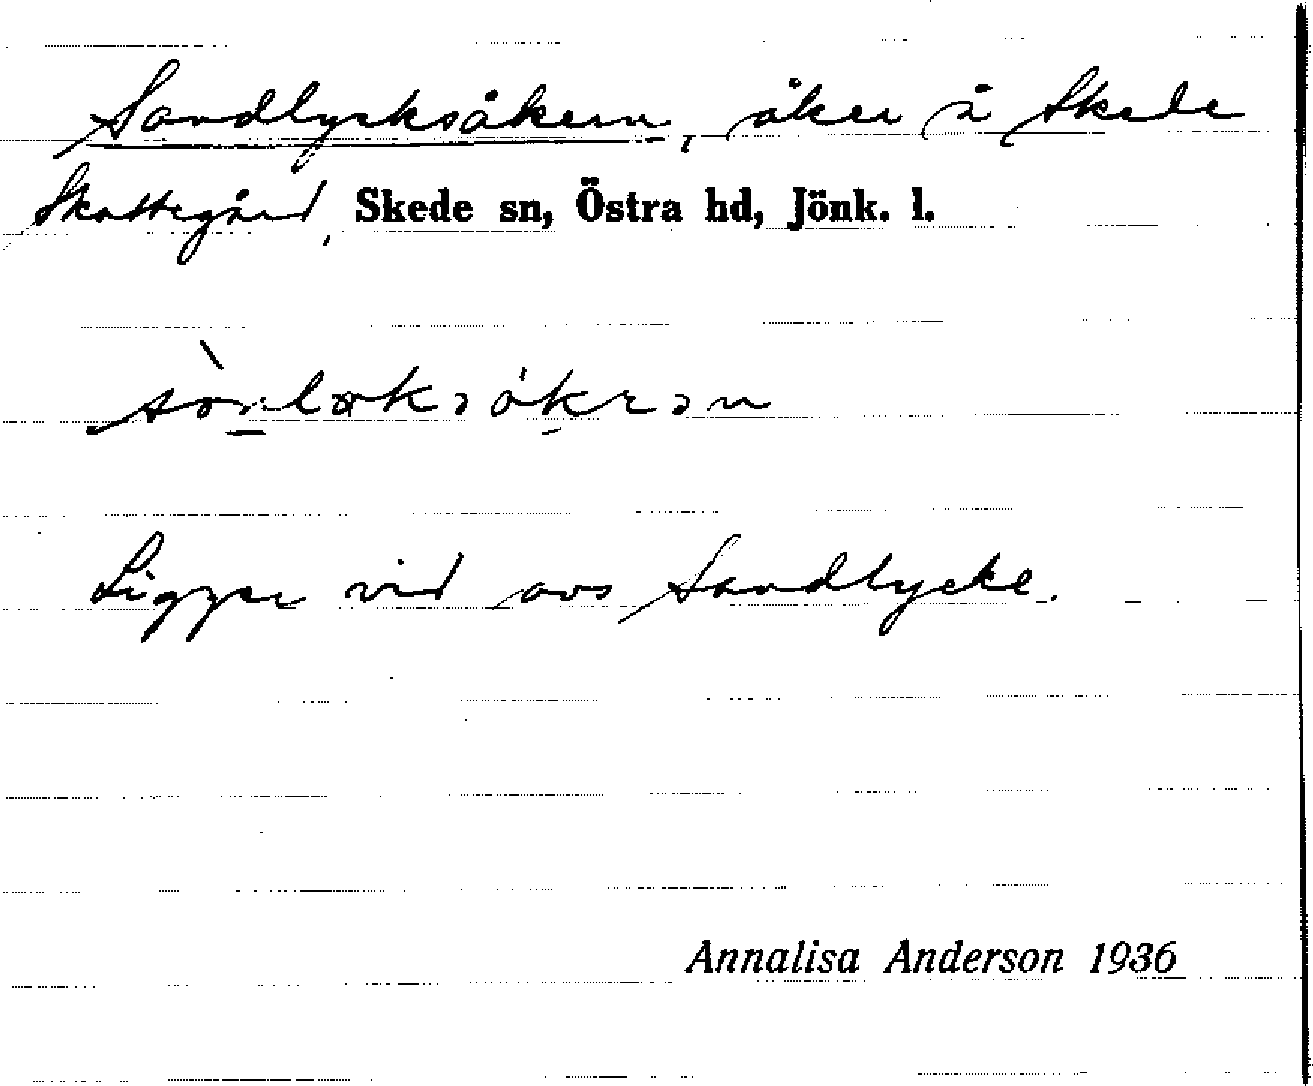 Sandlycksåkern, åker å Skede
Skattegård, Skede sn, Östra hd, Jönk. l.
Ligger vid avs Sandlycke.
Annalisa Anderson 1936